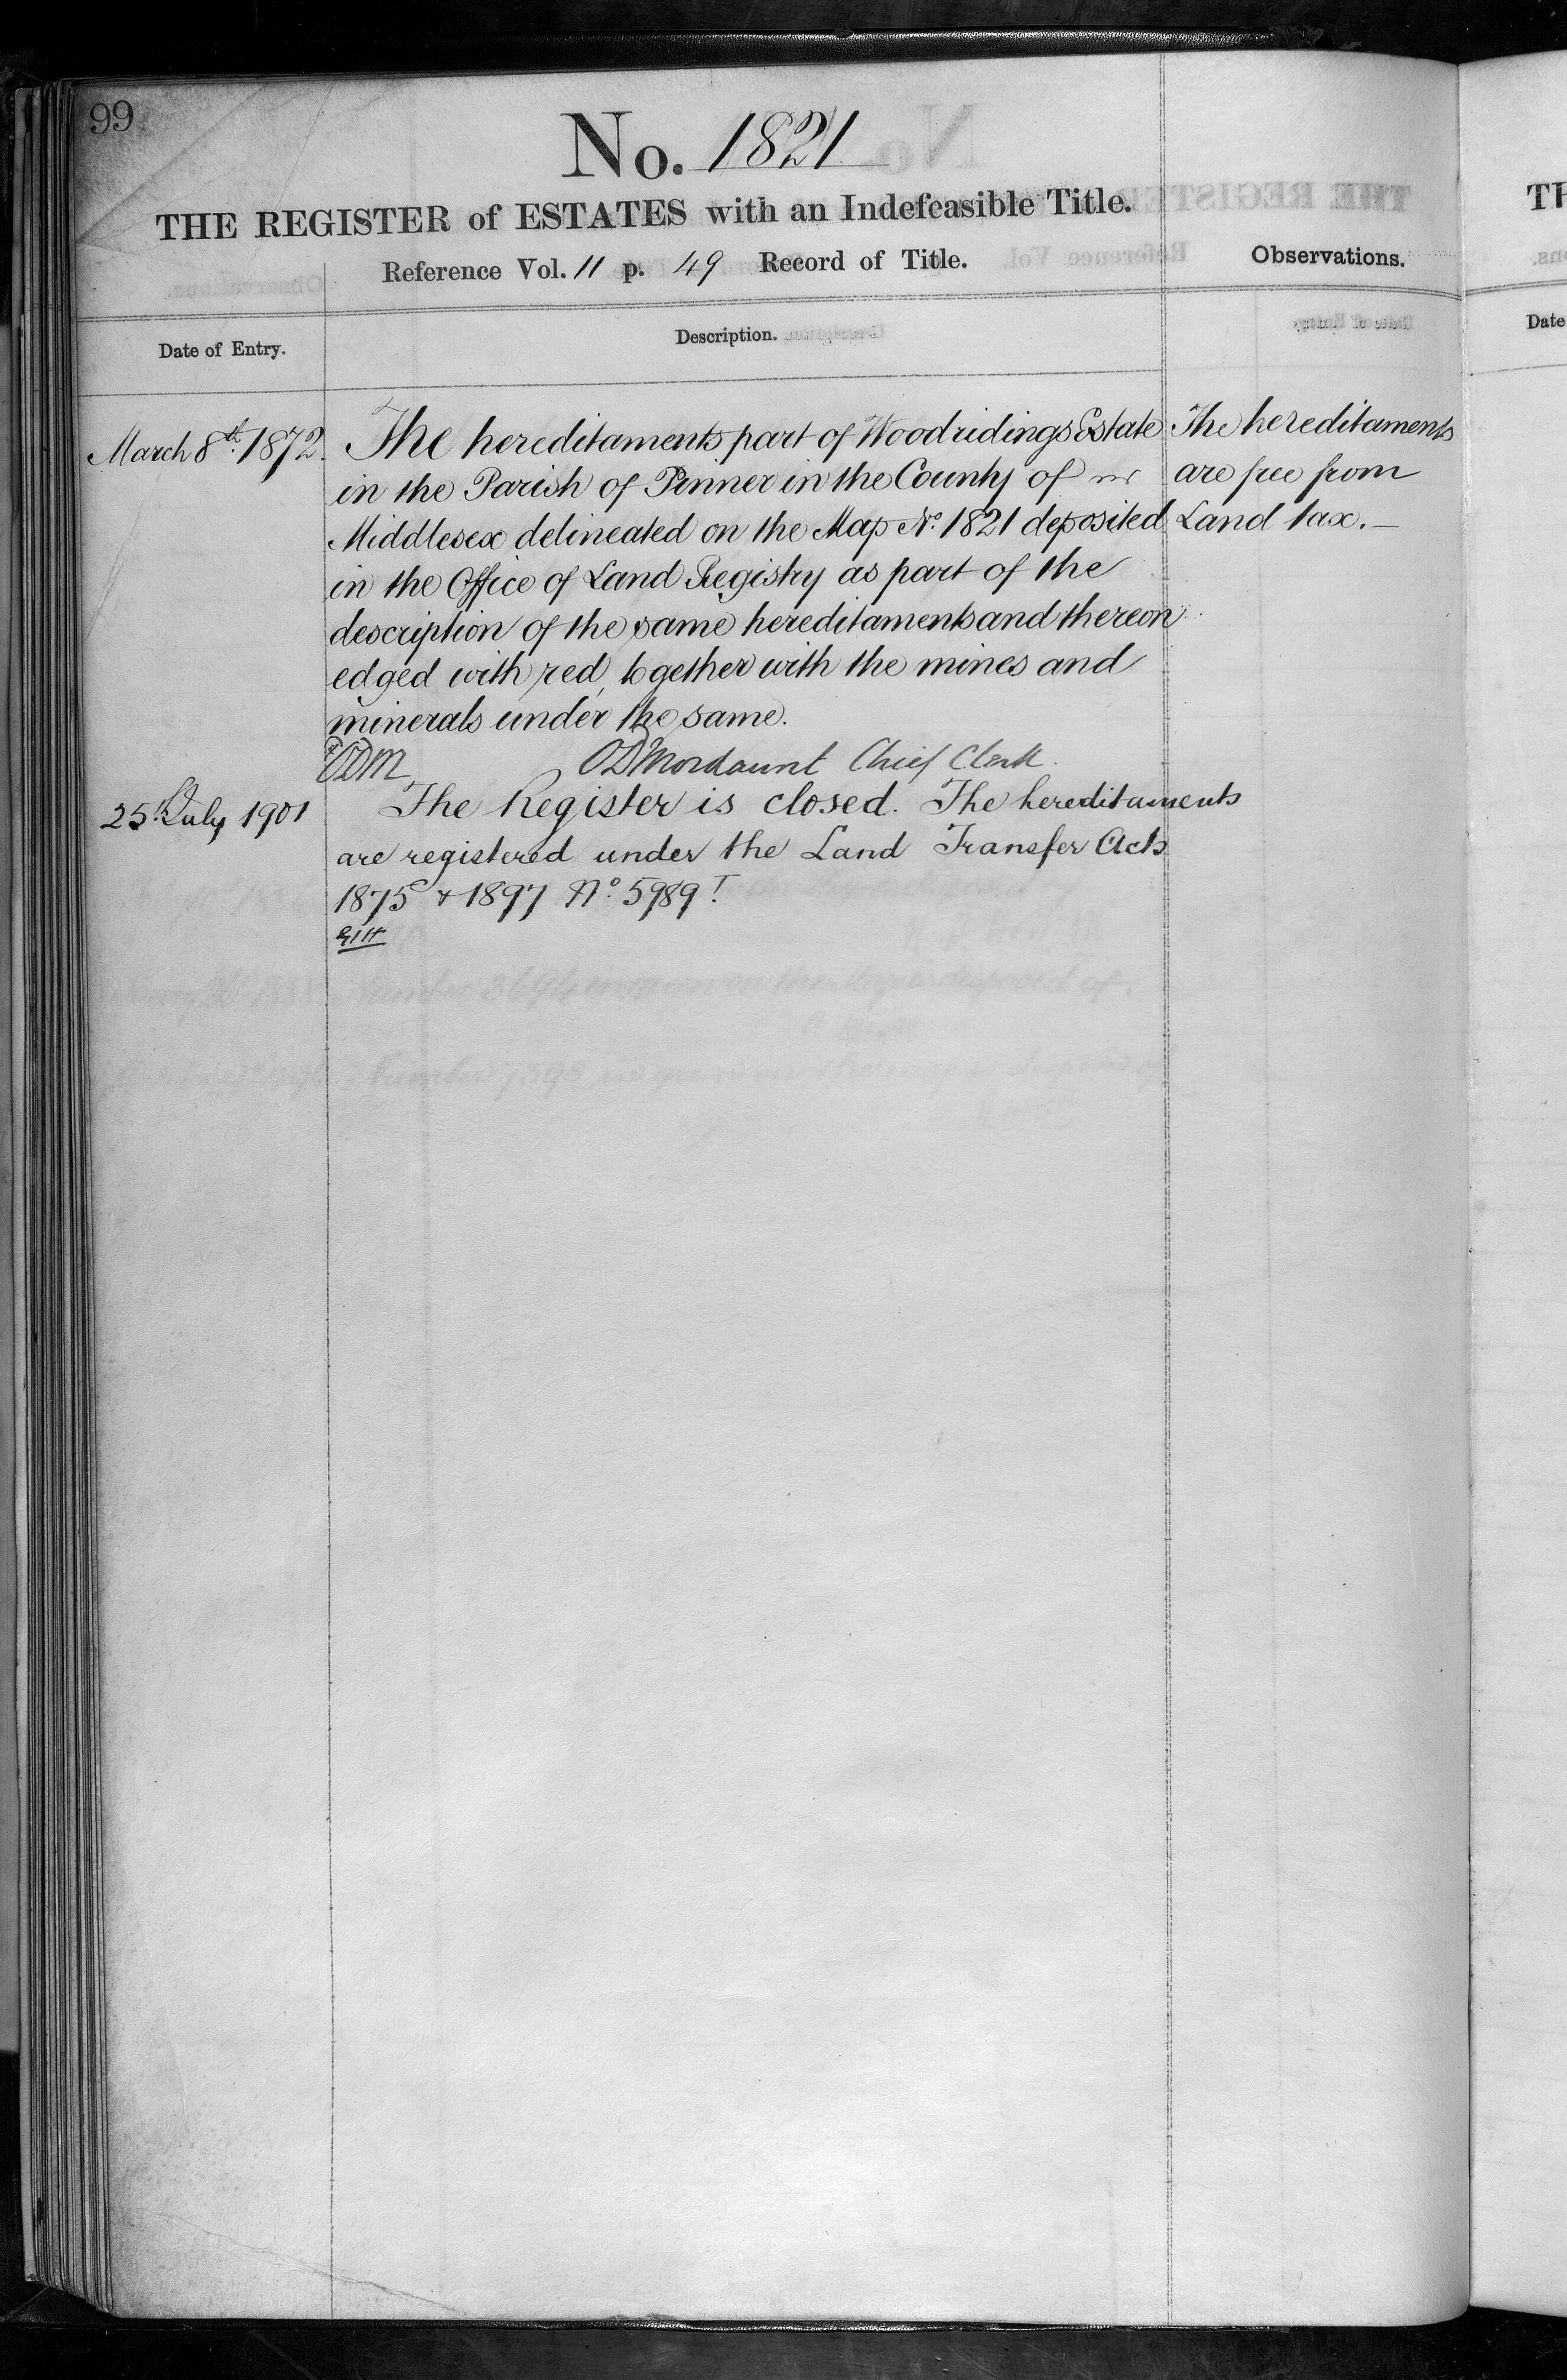 99
No. 1821
THE REGISTER of ESTATES with an Indefeasible Title.
Reference Vol. 11 p. 49 Record of Title.
Observations.
Date of Entry.
Description.
March 8th. 1872.
The hereditaments part of Woodridings Estate
in the Parish of Pinner in the County of
Middlesex delineated on the Map No. 1821 deposited
in the Office of Land Registry as part of the
description of the same hereditaments and thereon
edged with red, together with the mines and
minerals under the same.
The hereditaments
are free from
Land tax.—
ODM
ODMordaunt Chief Clerk.
25th July 1901
The Register is closed. The hereditaments
are registered under the Land Transfer Acts
1875 & 1897 No. 5989 T
TH
Date